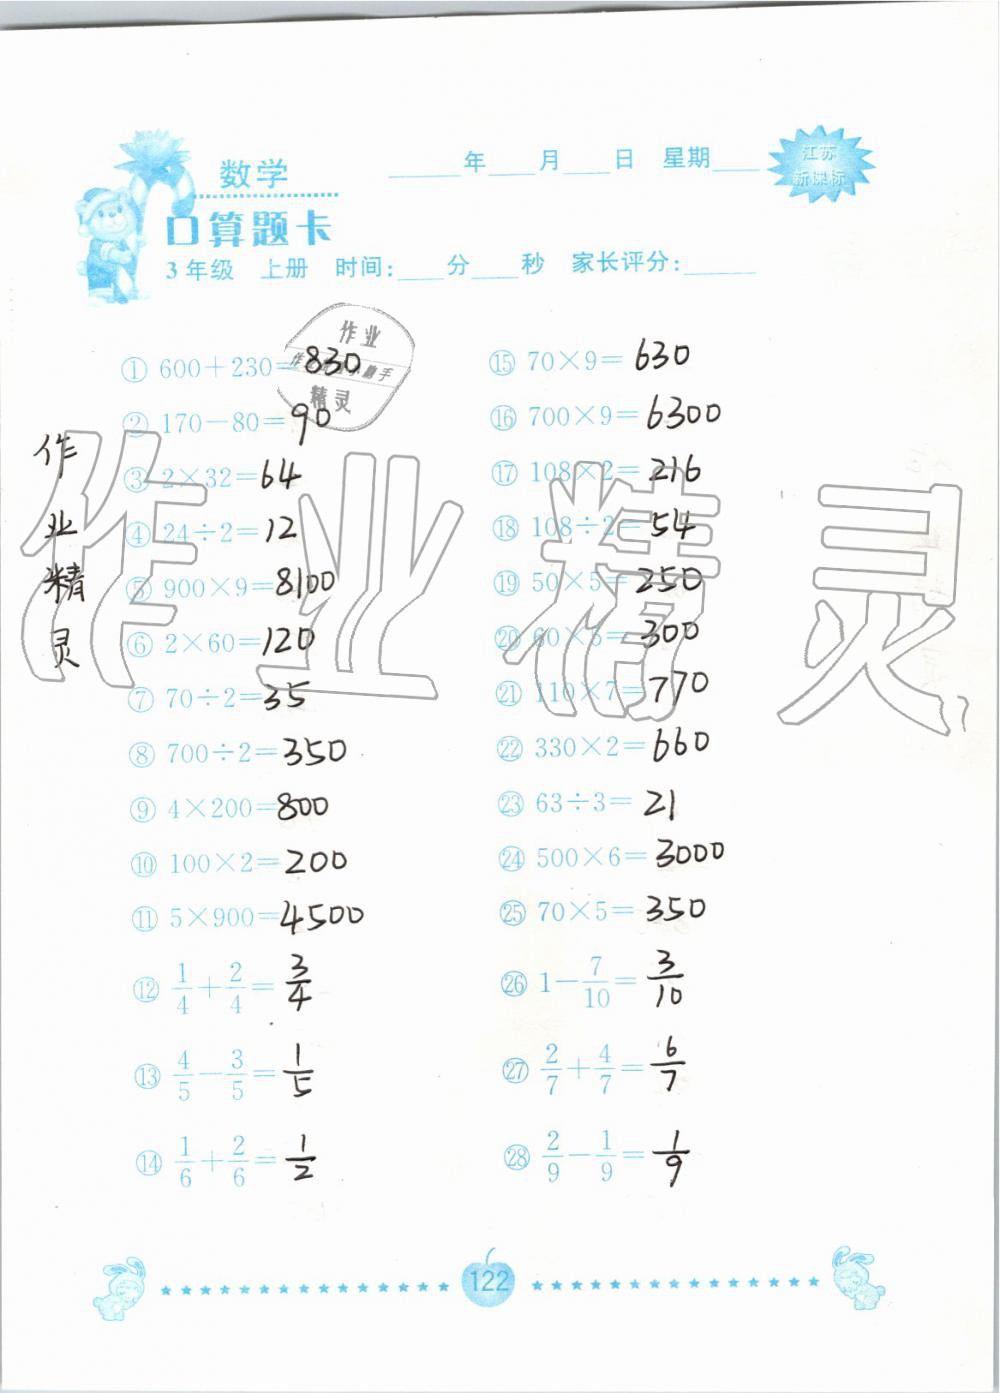 数学
年 月 日 星期
江苏
新课标
口算题卡
3年级 上册 时间: 分 秒 家长评分:
作业
小助手
精灵
作业精灵
作业精灵
① 600+230=830
② 170-80=90
③ 2×32=64
④ 24÷2=12
⑤ 900×9=8100
⑥ 2×60=120
⑦ 70÷2=35
⑧ 700÷2=350
⑨ 4×200=800
⑩ 100×2=200
⑪ 5×900=4500
⑫ 1/4+2/4=3/4
⑬ 4/5-3/5=1/5
⑭ 1/6+2/6=1/2
⑮ 70×9=630
⑯ 700×9=6300
⑰ 108×2=216
⑱ 108÷2=54
⑲ 50×5=250
⑳ 60×5=300
㉑ 110×7=770
㉒ 330×2=660
㉓ 63÷3=21
㉔ 500×6=3000
㉕ 70×5=350
㉖ 1-7/10=3/10
㉗ 2/7+4/7=6/7
㉘ 2/9-1/9=1/9
122